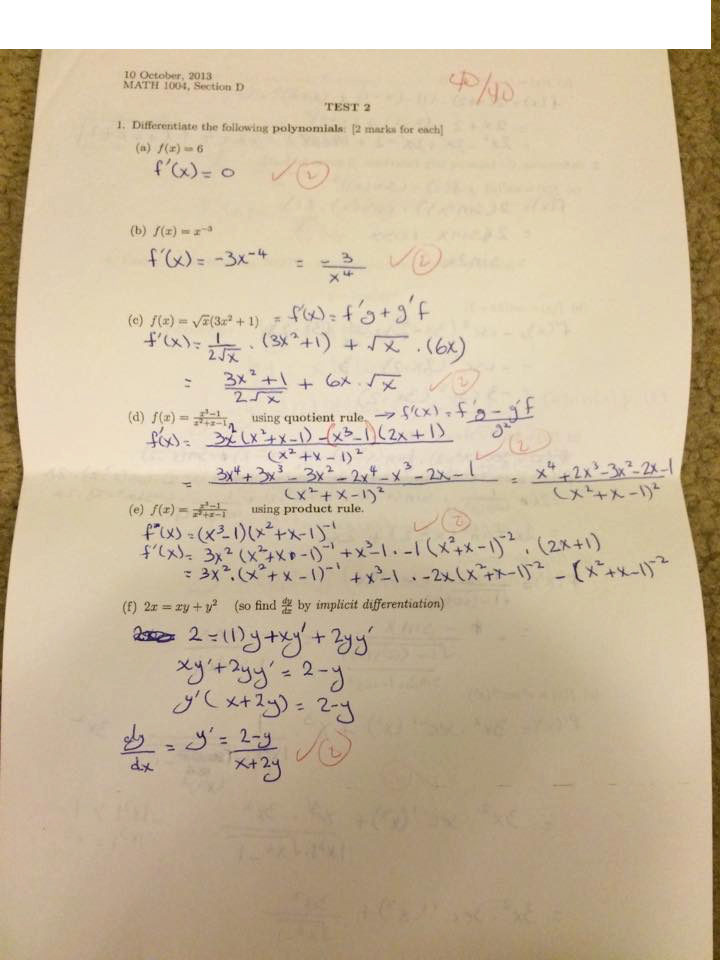 10 October, 2013
MATH 1004, Section D
40/40
TEST 2
1. Differentiate the following polynomials: [2 marks for each]
(a) f(x) = 6
f'(x) = 0 ✓ 2
(b) f(x) = x⁻³
f'(x) = -3x⁻⁴ = -3/x⁴ ✓ 2
(c) f(x) = √x(3x² + 1) = f'(x) = f'g + g'f
f'(x) = 1/(2√x) · (3x²+1) + √x · (6x)
= (3x²+1)/(2√x) + 6x·√x ✓ 2
(d) f(x) = (x³−1)/(x²+x−1) using quotient rule. → f'(x) = (f'g − g'f)/g²
f'(x) = (3x²(x²+x−1) − (x³−1)(2x+1))/(x²+x−1)² ✓ 2
= (3x⁴+3x³−3x²−2x⁴−x³−2x−1)/(x²+x−1)² = (x⁴+2x³−3x²−2x−1)/(x²+x−1)²
(e) f(x) = (x³−1)/(x²+x−1) using product rule. ✓ 2
f(x) = (x³−1)(x²+x−1)⁻¹
f'(x) = 3x²(x²+x−1)⁻¹ + x³−1 · −1(x²+x−1)⁻² · (2x+1)
= 3x²·(x²+x−1)⁻¹ + x³−1 · −2x(x²+x−1)⁻² − (x²+x−1)⁻²
(f) 2x = xy + y² (so find dy/dx by implicit differentiation)
2 = (1)y + xy' + 2yy'
xy' + 2yy' = 2−y
y'(x+2y) = 2−y
dy/dx = y' = (2−y)/(x+2y) ✓ 2